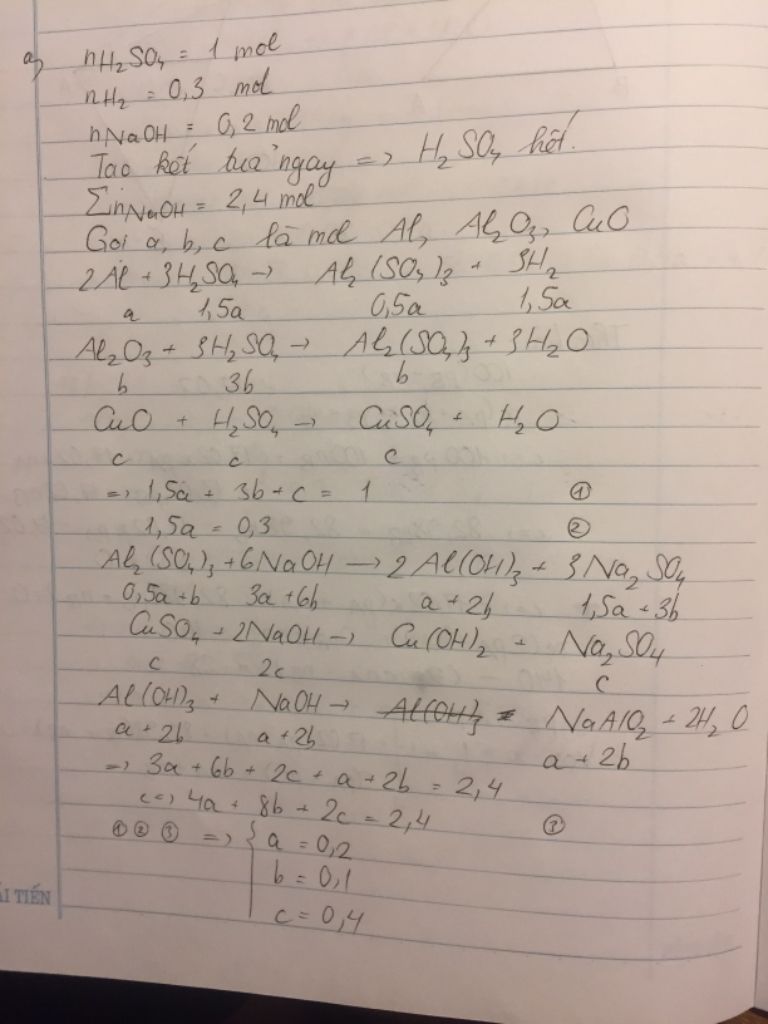 a) nH₂SO₄ = 1 mol
nH₂ = 0,3 mol
nNaOH = 0,2 mol
Tạo kết tủa ngay => H₂SO₄ hết.
ΣnNaOH = 2,4 mol
Gọi a, b, c là mol Al, Al₂O₃, CuO
2Al + 3H₂SO₄ → Al₂(SO₄)₃ + 3H₂
a 1,5a 0,5a 1,5a
Al₂O₃ + 3H₂SO₄ → Al₂(SO₄)₃ + 3H₂O
b 3b b
CuO + H₂SO₄ → CuSO₄ + H₂O
c c c
=> 1,5a + 3b + c = 1 ①
1,5a = 0,3 ②
Al₂(SO₄)₃ + 6NaOH → 2Al(OH)₃ + 3Na₂SO₄
0,5a+b 3a+6b a+2b 1,5a+3b
CuSO₄ + 2NaOH → Cu(OH)₂ + Na₂SO₄
c 2c c
Al(OH)₃ + NaOH → Al(OH)₃ NaAlO₂ + 2H₂O
a+2b a+2b a+2b
=> 3a + 6b + 2c + a + 2b = 2,4
<=> 4a + 8b + 2c = 2,4 ③
① ② ③ => { a = 0,2
b = 0,1
c = 0,4
ẢI TIẾN